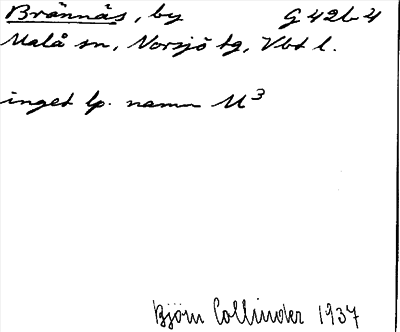 Brännäs, by G 42b 4
Malå sn, Norsjö tg, Vbt l.
inget lp. namn M³
Björn Collinder 1937